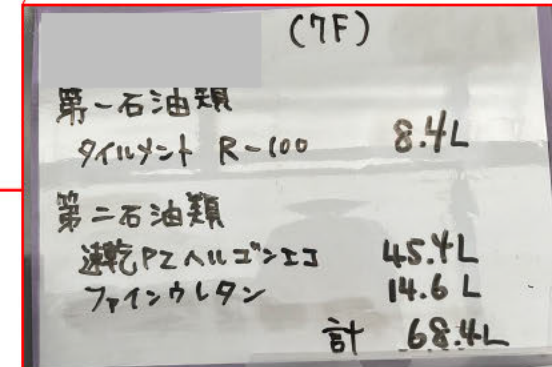 (7F)
第一石油類
タイルメント R-100 8.4L
第二石油類
速乾PZヘルゴンエコ 45.4L
ファインウレタン 14.6L
計 68.4L